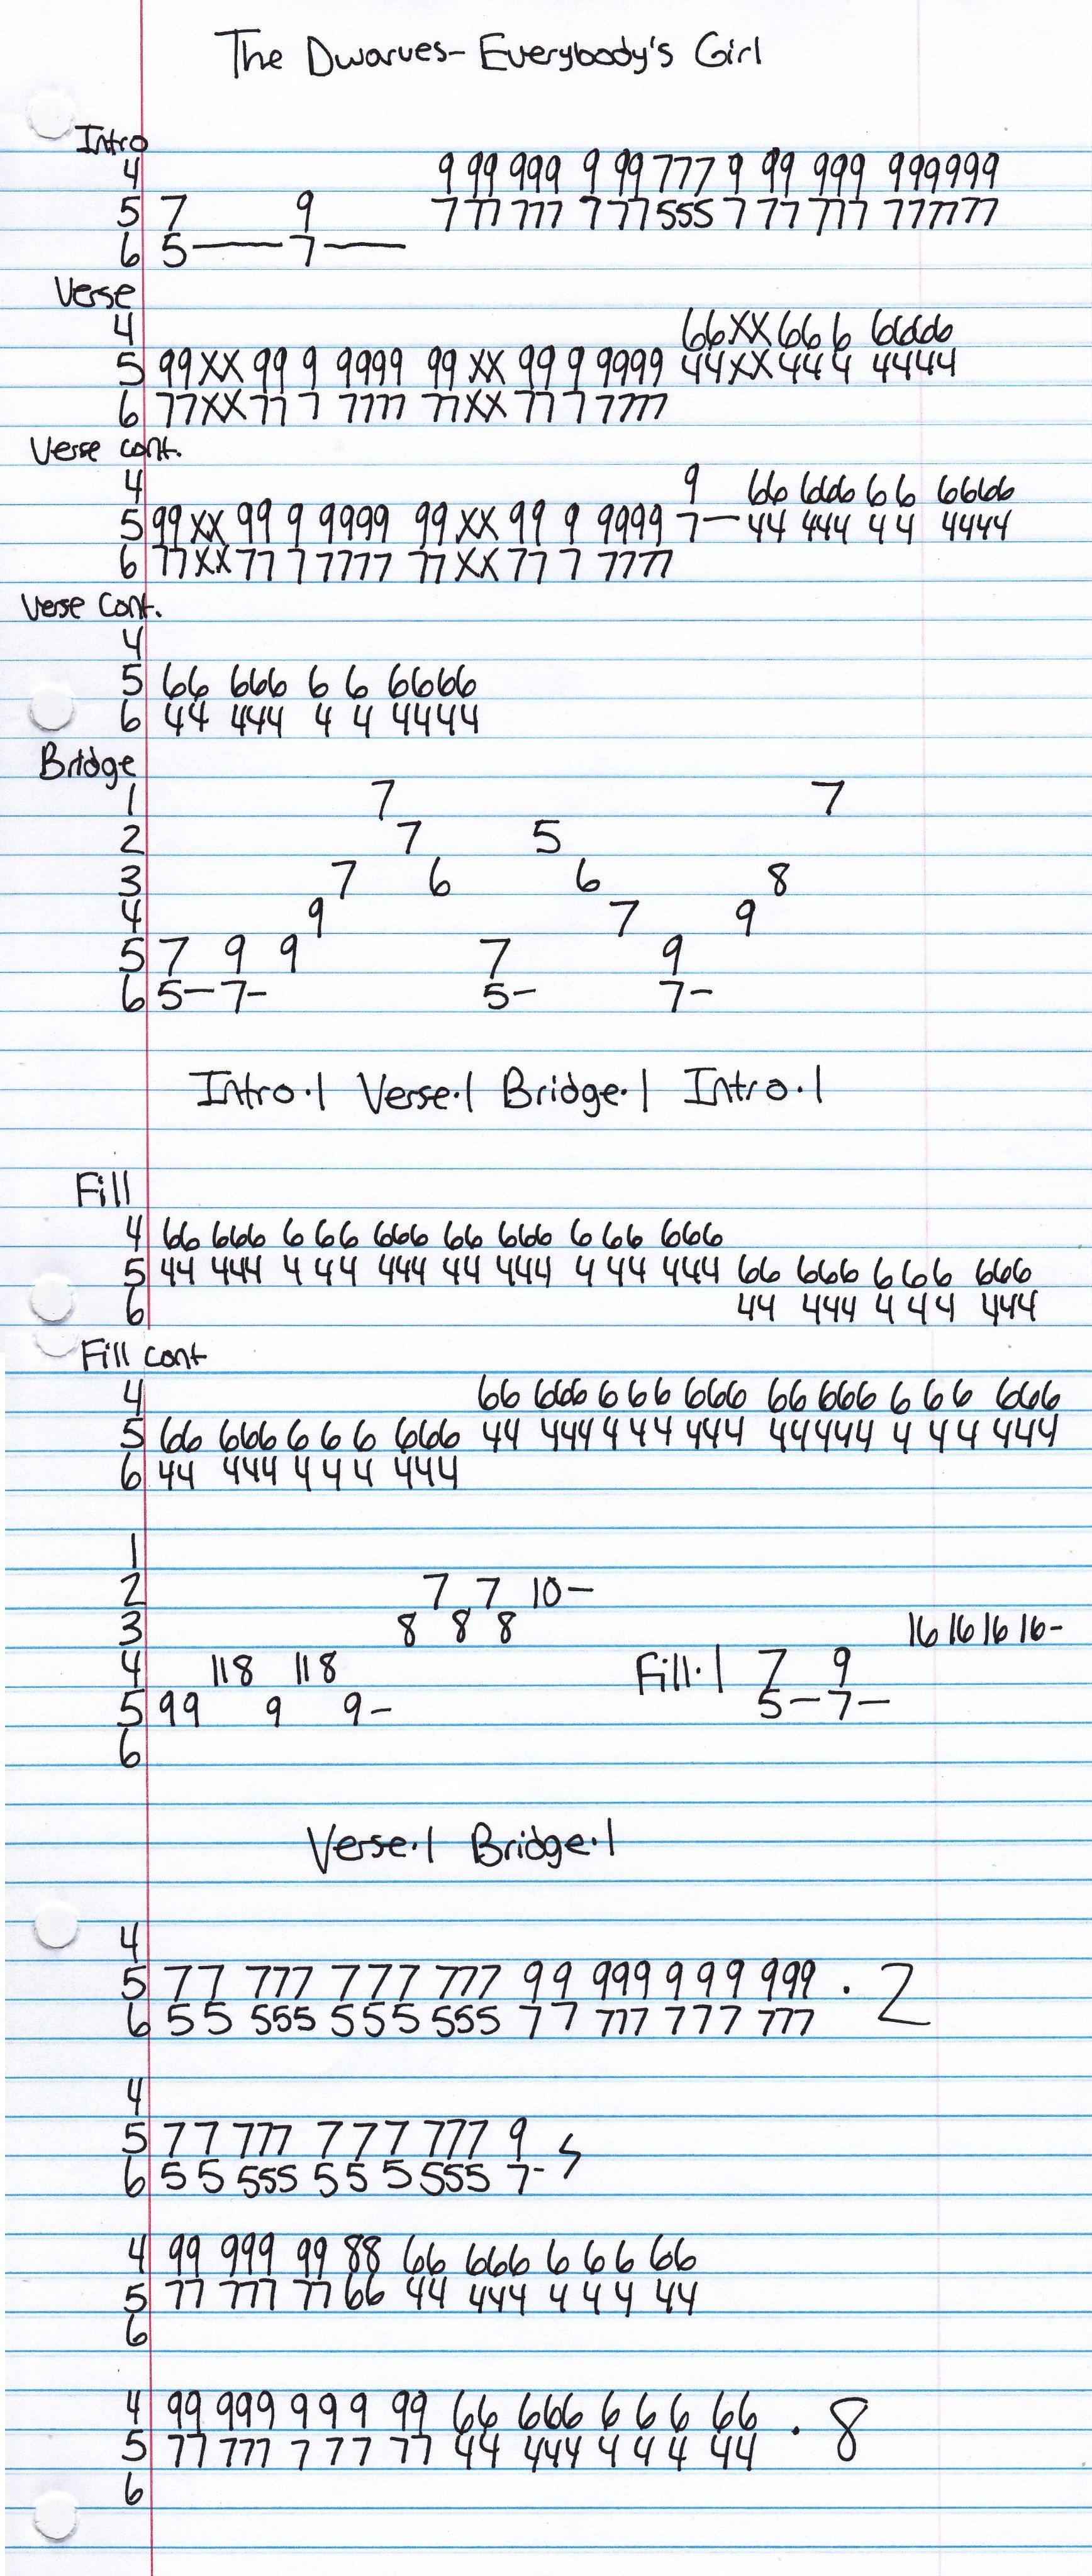 The Dwarves- Everybody's Girl
Intro
4 9 99 999 9 99 777 9 99 999 999999
5 7 9 7 77 777 7 77 555 7 77 777 777777
6 5— 7—
Verse
4 66XX66 6 6666
5 99XX 99 9 9999 99 XX 99 9 9999 44XX44 4 4444
6 77XX77 7 7777 77XX 77 7 7777
Verse cont.
4 9 66 666 6 6 6666
5 99 XX 99 9 9999 99 XX 99 9 9999 7— 44 444 4 4 4444
6 77XX77 7 7777 77 XX77 7 7777
Verse Cont.
4
5 66 666 6 6 6666
6 44 444 4 4 4444
Bridge
1 7 7
2 7 5
3 7 6 6 8
4 9 7 9
5 7 9 9 7 9
6 5— 7- 5- 7-
Intro·1 Verse·1 Bridge·1 Intro·1
Fill
4 66 666 6 6 6 666 66 666 6 66 666
5 44 444 4 4 4 444 44 444 4 44 444 66 666 6 6 6 666
6 44 444 4 4 4 444
Fill cont
4 66 666 6 6 6 666 66 666 6 6 6 666
5 66 666 6 6 6 666 44 444 4 4 4 444 44444 4 4 4 444
6 44 444 4 4 4 444
1
2 7 7 10-
3 8 8 8 16 16 16 16-
4 118 118 Fill·1 7 9
5 99 9 9- 5— 7—
6
Verse·1 Bridge·1
4
5 77 777 777 777 99 999 9 9 9 999 · 2
6 55 555 555 555 77 777 777 777
4
5 77 777 777 777 9
6 55 555 55 5 555 7-
4 99 999 99 88 66 666 6 6 6 66
5 77 777 77 66 44 444 4 4 4 44
6
4 99 999 9 9 9 99 66 666 6 6 6 66 · 8
5 77 777 7 77 77 44 444 4 4 4 44
6